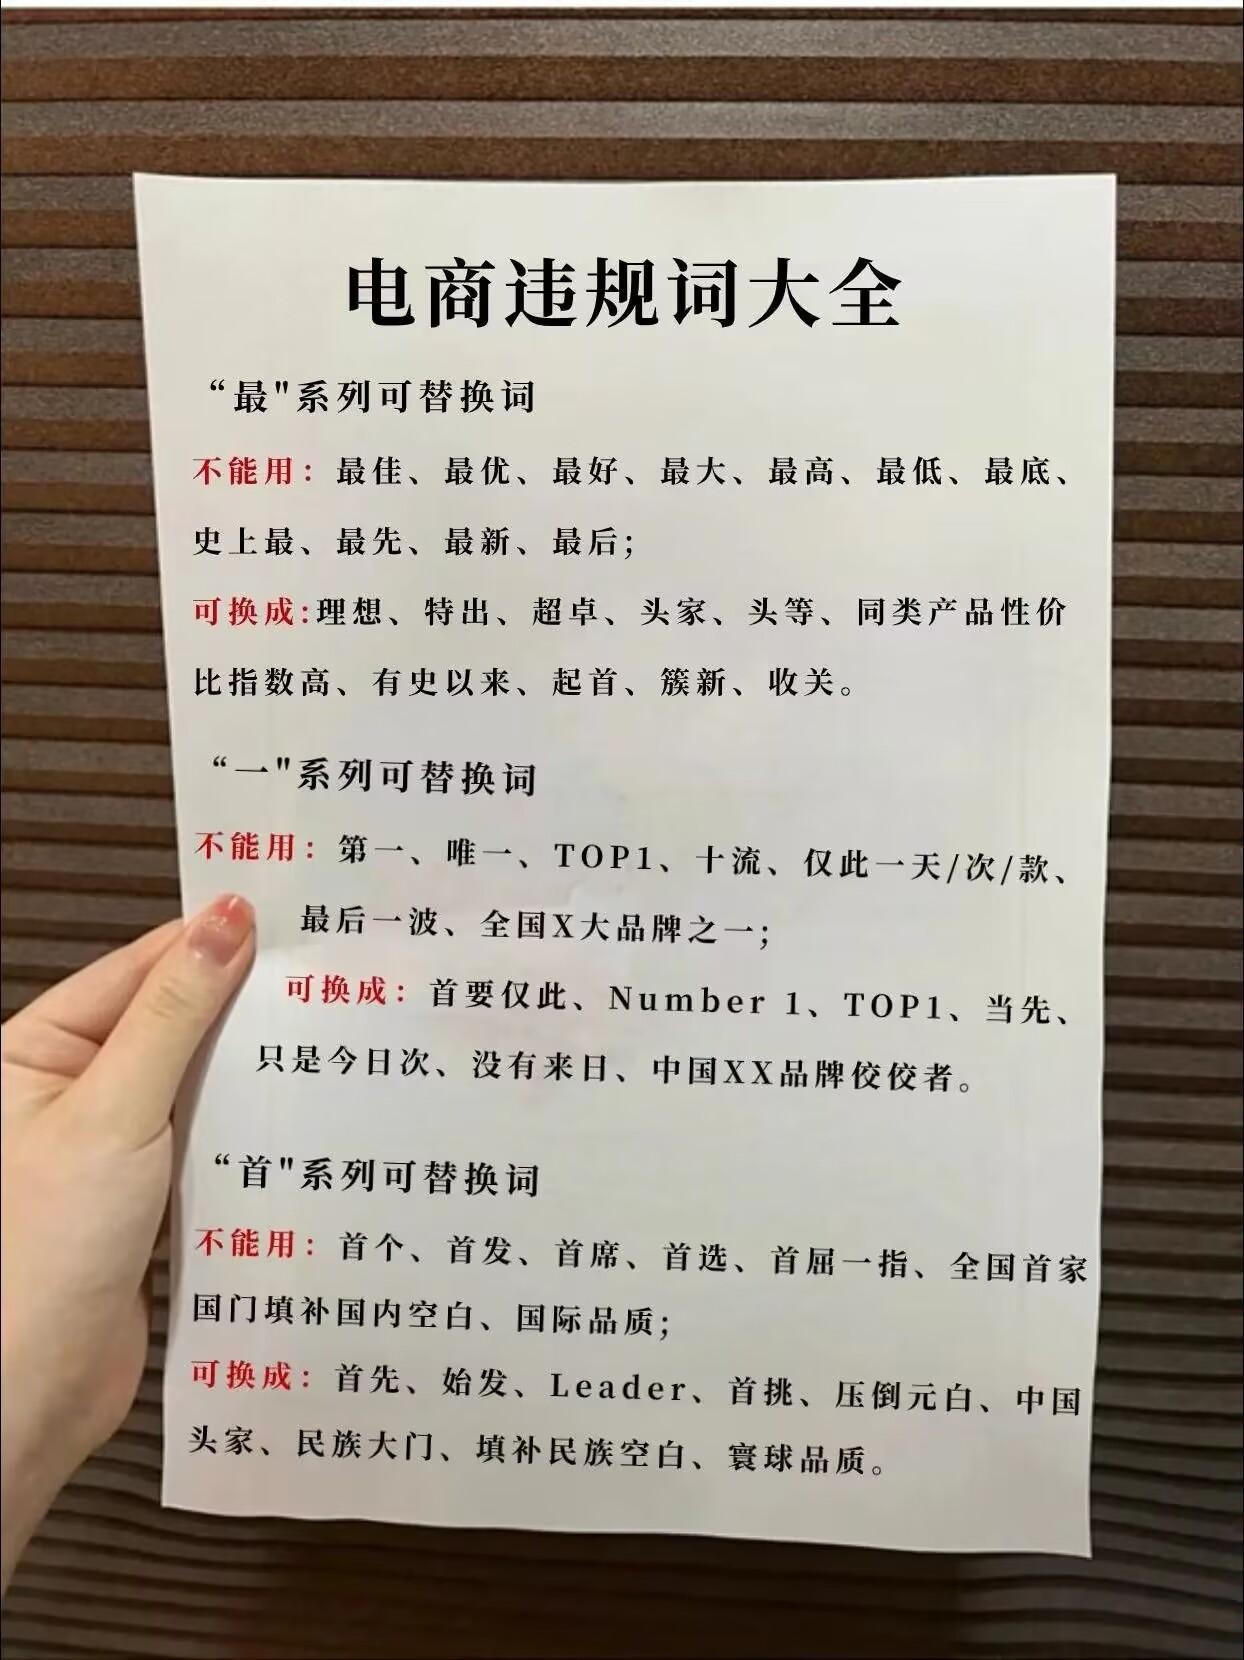 电商违规词大全
“最"系列可替换词
不能用：最佳、最优、最好、最大、最高、最低、最底、
史上最、最先、最新、最后；
可换成:理想、特出、超卓、头家、头等、同类产品性价
比指数高、有史以来、起首、簇新、收关。
“一"系列可替换词
不能用：第一、唯一、TOP1、十流、仅此一天/次/款、
最后一波、全国X大品牌之一；
可换成：首要仅此、Number 1、TOP1、当先、
只是今日次、没有来日、中国XX品牌佼佼者。
“首"系列可替换词
不能用：首个、首发、首席、首选、首屈一指、全国首家
国门填补国内空白、国际品质；
可换成：首先、始发、Leader、首挑、压倒元白、中国
头家、民族大门、填补民族空白、寰球品质。